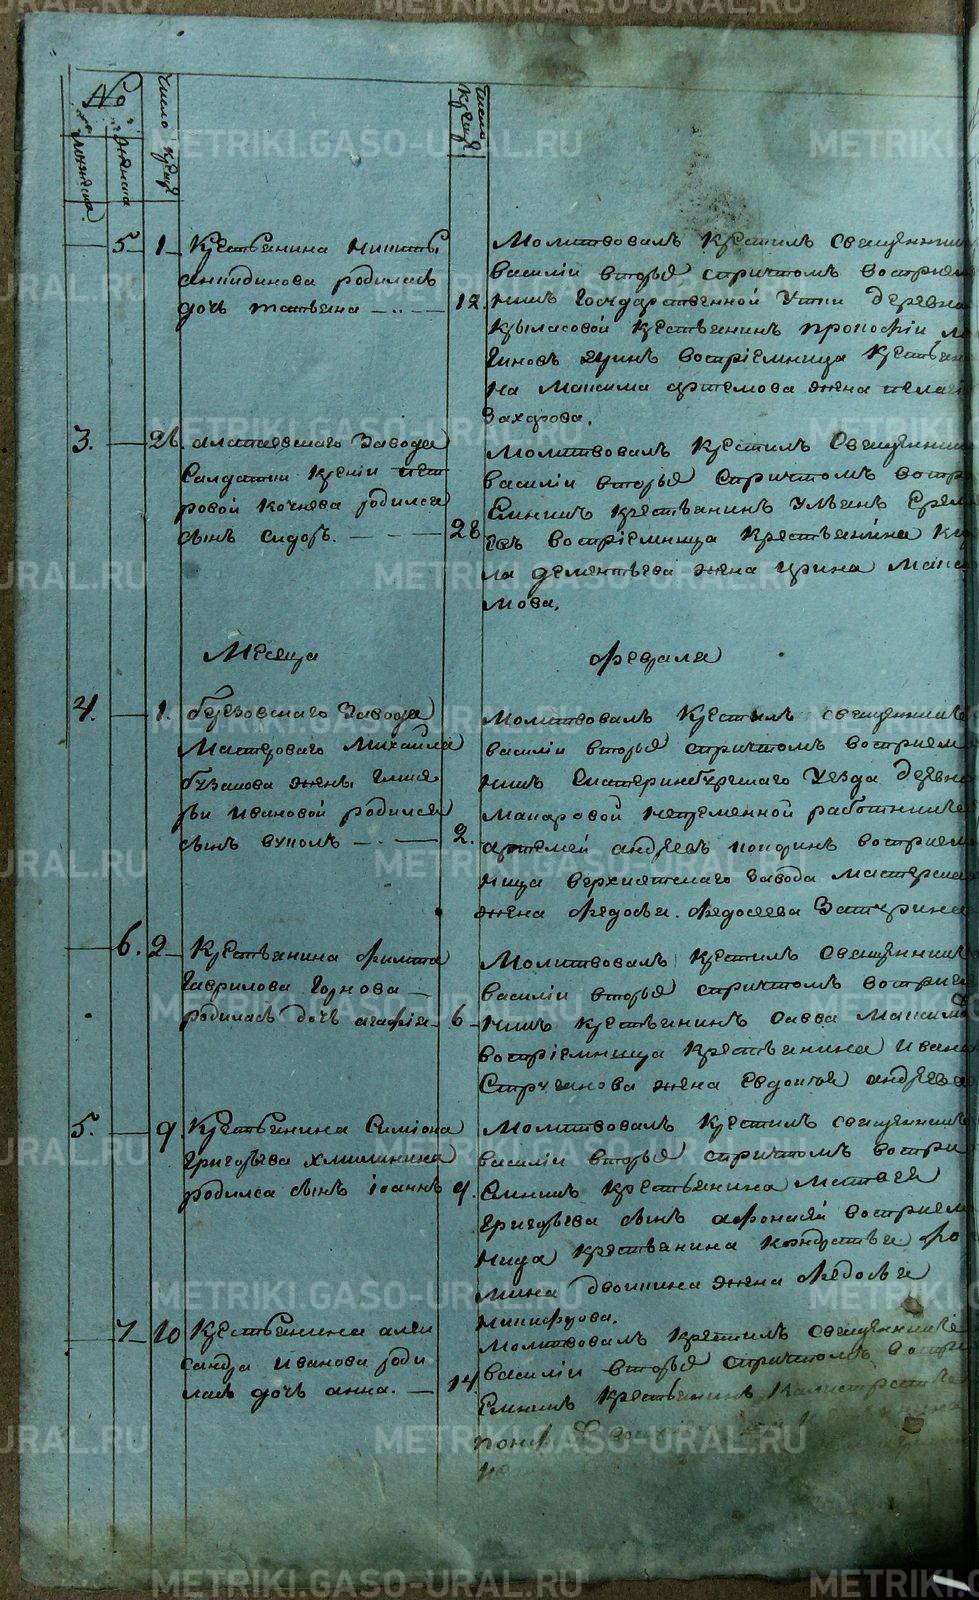 №
мужеска
женска
число рождe
число креще
5 1 Крестьянина Никиты
родилась
дочь татьяна 12
Молитвовалъ крестилъ священникъ
василіи вторыя спричтомъ восприем
никъ Государственной Утки деревни
крыласовой крестьянинъ прокофіи
восприемница крестьяни
на максима артемова жена пелаге
Захарова.
3. 26 алапаевскаго Завода
Салдатки ксеніи пет
ровой кочнева родился
сынъ сидоръ. 28
Молитвовалъ крестилъ Священник
василіи вторыя Спричтомъ воспр
Емникъ крестьянинъ Ульянъ Ерем
восприемница крестьянина ки
ла дементьева жена ирина макс
мова.
Месяца февраля
4. 1. березовскаго Завода
Мастероваго Михаила
бузанова жены
ивановой родился
сынъ вуколъ 2.
Молитвовалъ Крестилъ священникъ
василіи вторыя спричтомъ восприем
никъ Екатеринбургскаго Уезда деревни
макаровой непременной работникъ
артемей андреевъ кокоринъ восприем
ница верхисетскаго завода мастерска
жена федосья федосеева
6. 2 Крестьянина филипа
гаврилова Горнова
родилась дочь агафія 6
Молитвовалъ крестилъ Священникъ
василіи вторыя спричтомъ восприе
никъ крестьянинъ савва Максимо
восприемница крестьянина ивана
Стрчанова жена Евдокія андреева
5. 9. Крестьянина Симіона
григорьева
родился сынъ іоаннъ 9.
Молитвовалъ крестилъ священникъ
василіи вторыя спричтомъ воспри
Емникъ крестьянина матвея
григорьева сынъ афонасей восприем
ница крестьянина кондратьи фо
мина двоинина жена федосьи
никифорова.
7 10 Крестьянина алек
сандра иванова роди
лась дочь анна. 14
Молитвовалъ крестилъ Священникъ
василіи вторыя спричтомъ воспри
Емникъ крестьянинъ
METRIKI.GASO-URAL.RU